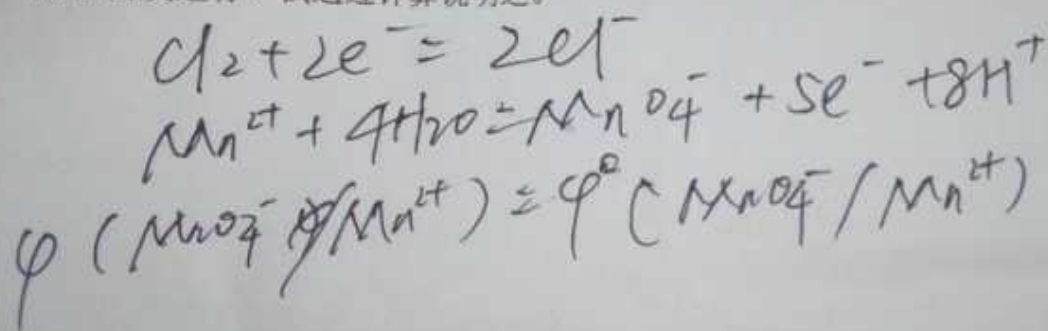 Cl₂ + 2e⁻ = 2Cl⁻
Mn²⁺ + 4H₂O = MnO₄⁻ + 5e⁻ + 8H⁺
φ (MnO₄⁻ / Mn²⁺) = φ° (MnO₄⁻ / Mn²⁺)